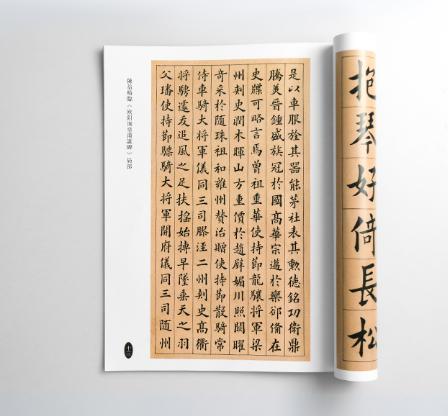 抱琴好倚長松
是以車服旌其器能茅社表其勲德銘功衛鼎
騰美晉鍾盛族冠於國高華宗邁於欒郤備在
史牒可略言焉曾祖重華使持節龍驤將軍梁
州刺史潤木暉山方重價於趙璧媚川照闕曜
奇采於隨珠祖和雍州贊治贈使持節散騎常
侍車騎大將軍儀同三司膠涇二州刺史高衢
將騁遽夭追風之足扶搖始摶早墜垂天之羽
父璠使持節驃騎大將軍開府儀同三司隨州
《歐陽詢皇甫誕碑》局部